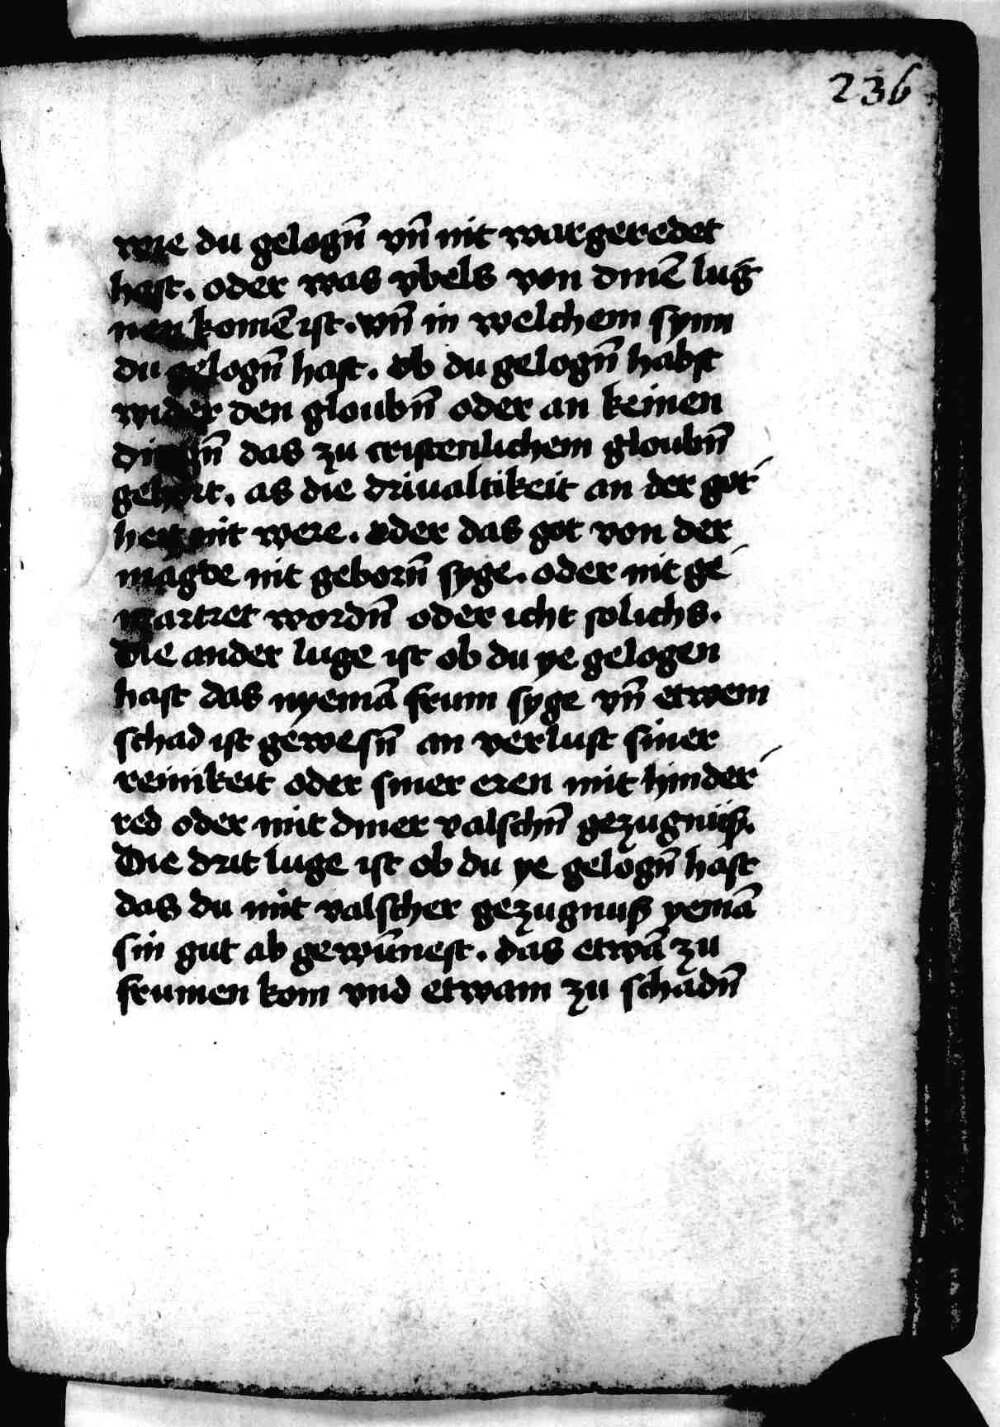 236
wie du gelogn̄ vn̄ nit war geredet
hast. oder was vbels von dinē lug
nen komē ist. vn̄ in welchem synn
du gelogn̄ hast. ob du gelogn̄ habst
wider den gloubn̄ oder an keinen
dingn̄ das zu cristenlichem gloubn̄
gehort. as die driualtikeit an der got
heit nit were. oder das got von der
magde nit geborn̄ syge. oder nit ge
martret wordn̄ oder icht solichs.
Die ander luge ist ob du ye gelogen
hast das nyemā frum syge vn̄ etwem
schad ist gewesn̄ an verlust siner
reinikeit oder siner eren mit hinder
red oder mit diner valschn̄ gezugniß.
Die drit luge ist ob du ye gelogn̄ hast
das du mit valscher gezugnuß yemā
sin gut ab gewūnest. das etwā zu
frumen kom vnd etwam zu schadn̄